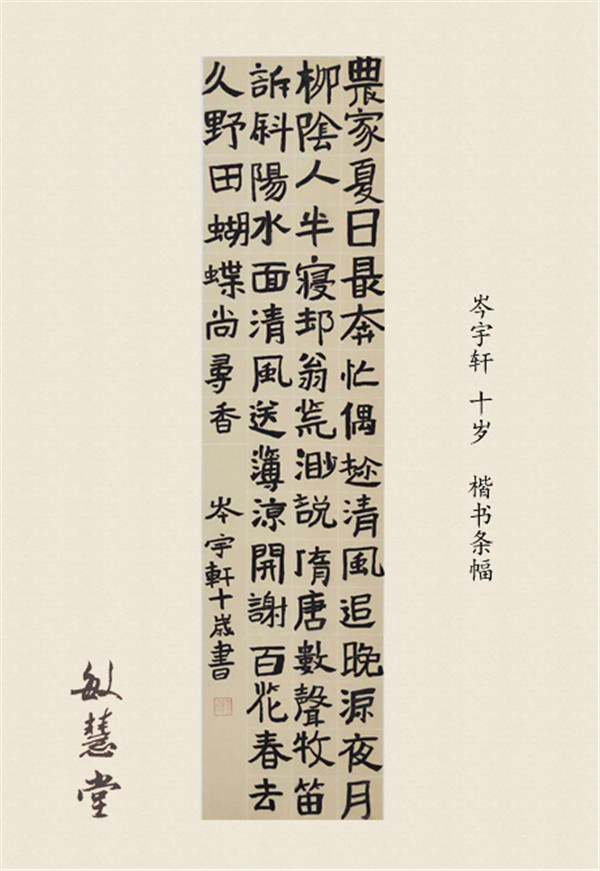 農家夏日最奔忙偶趂清風追晚涼夜月
柳陰人半寢邨翁荒渺説隋唐數聲牧笛
訴斜陽水面清風送薄涼開謝百花春去
久野田蝴蝶尚尋香 岑宇軒十歲書
岑宇轩 十岁 楷书条幅
敏慧堂